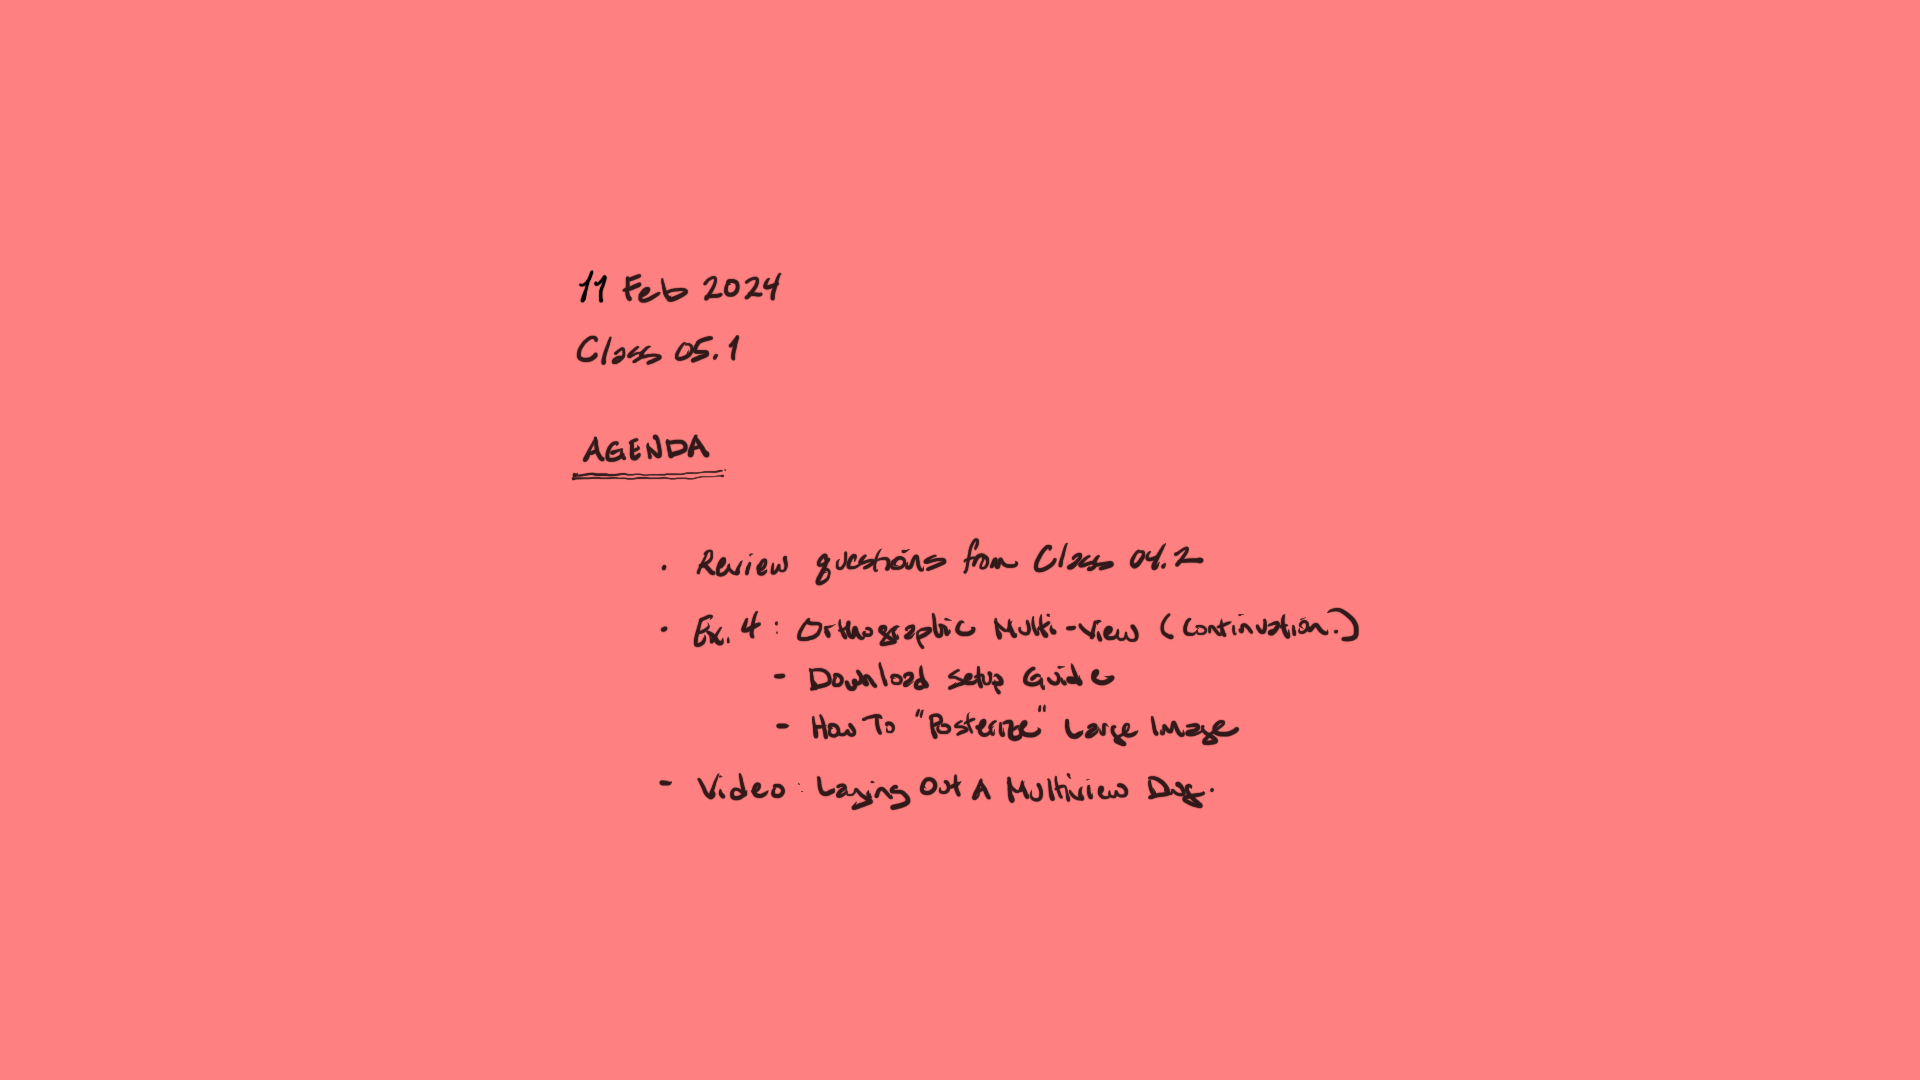 11 Feb 2024
Class 05.1
AGENDA
· Review questions from Class 04.2
· Ex. 4 : Orthographic Multi-View (Continuation.)
- Download Setup Guide
- How To "Posterize" Large Image
- Video : Laying Out A Multiview Dwg.